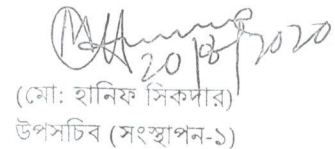 20/8/2020
(মো: হানিফ সিকদার)
উপসচিব (সংস্থাপন-১)